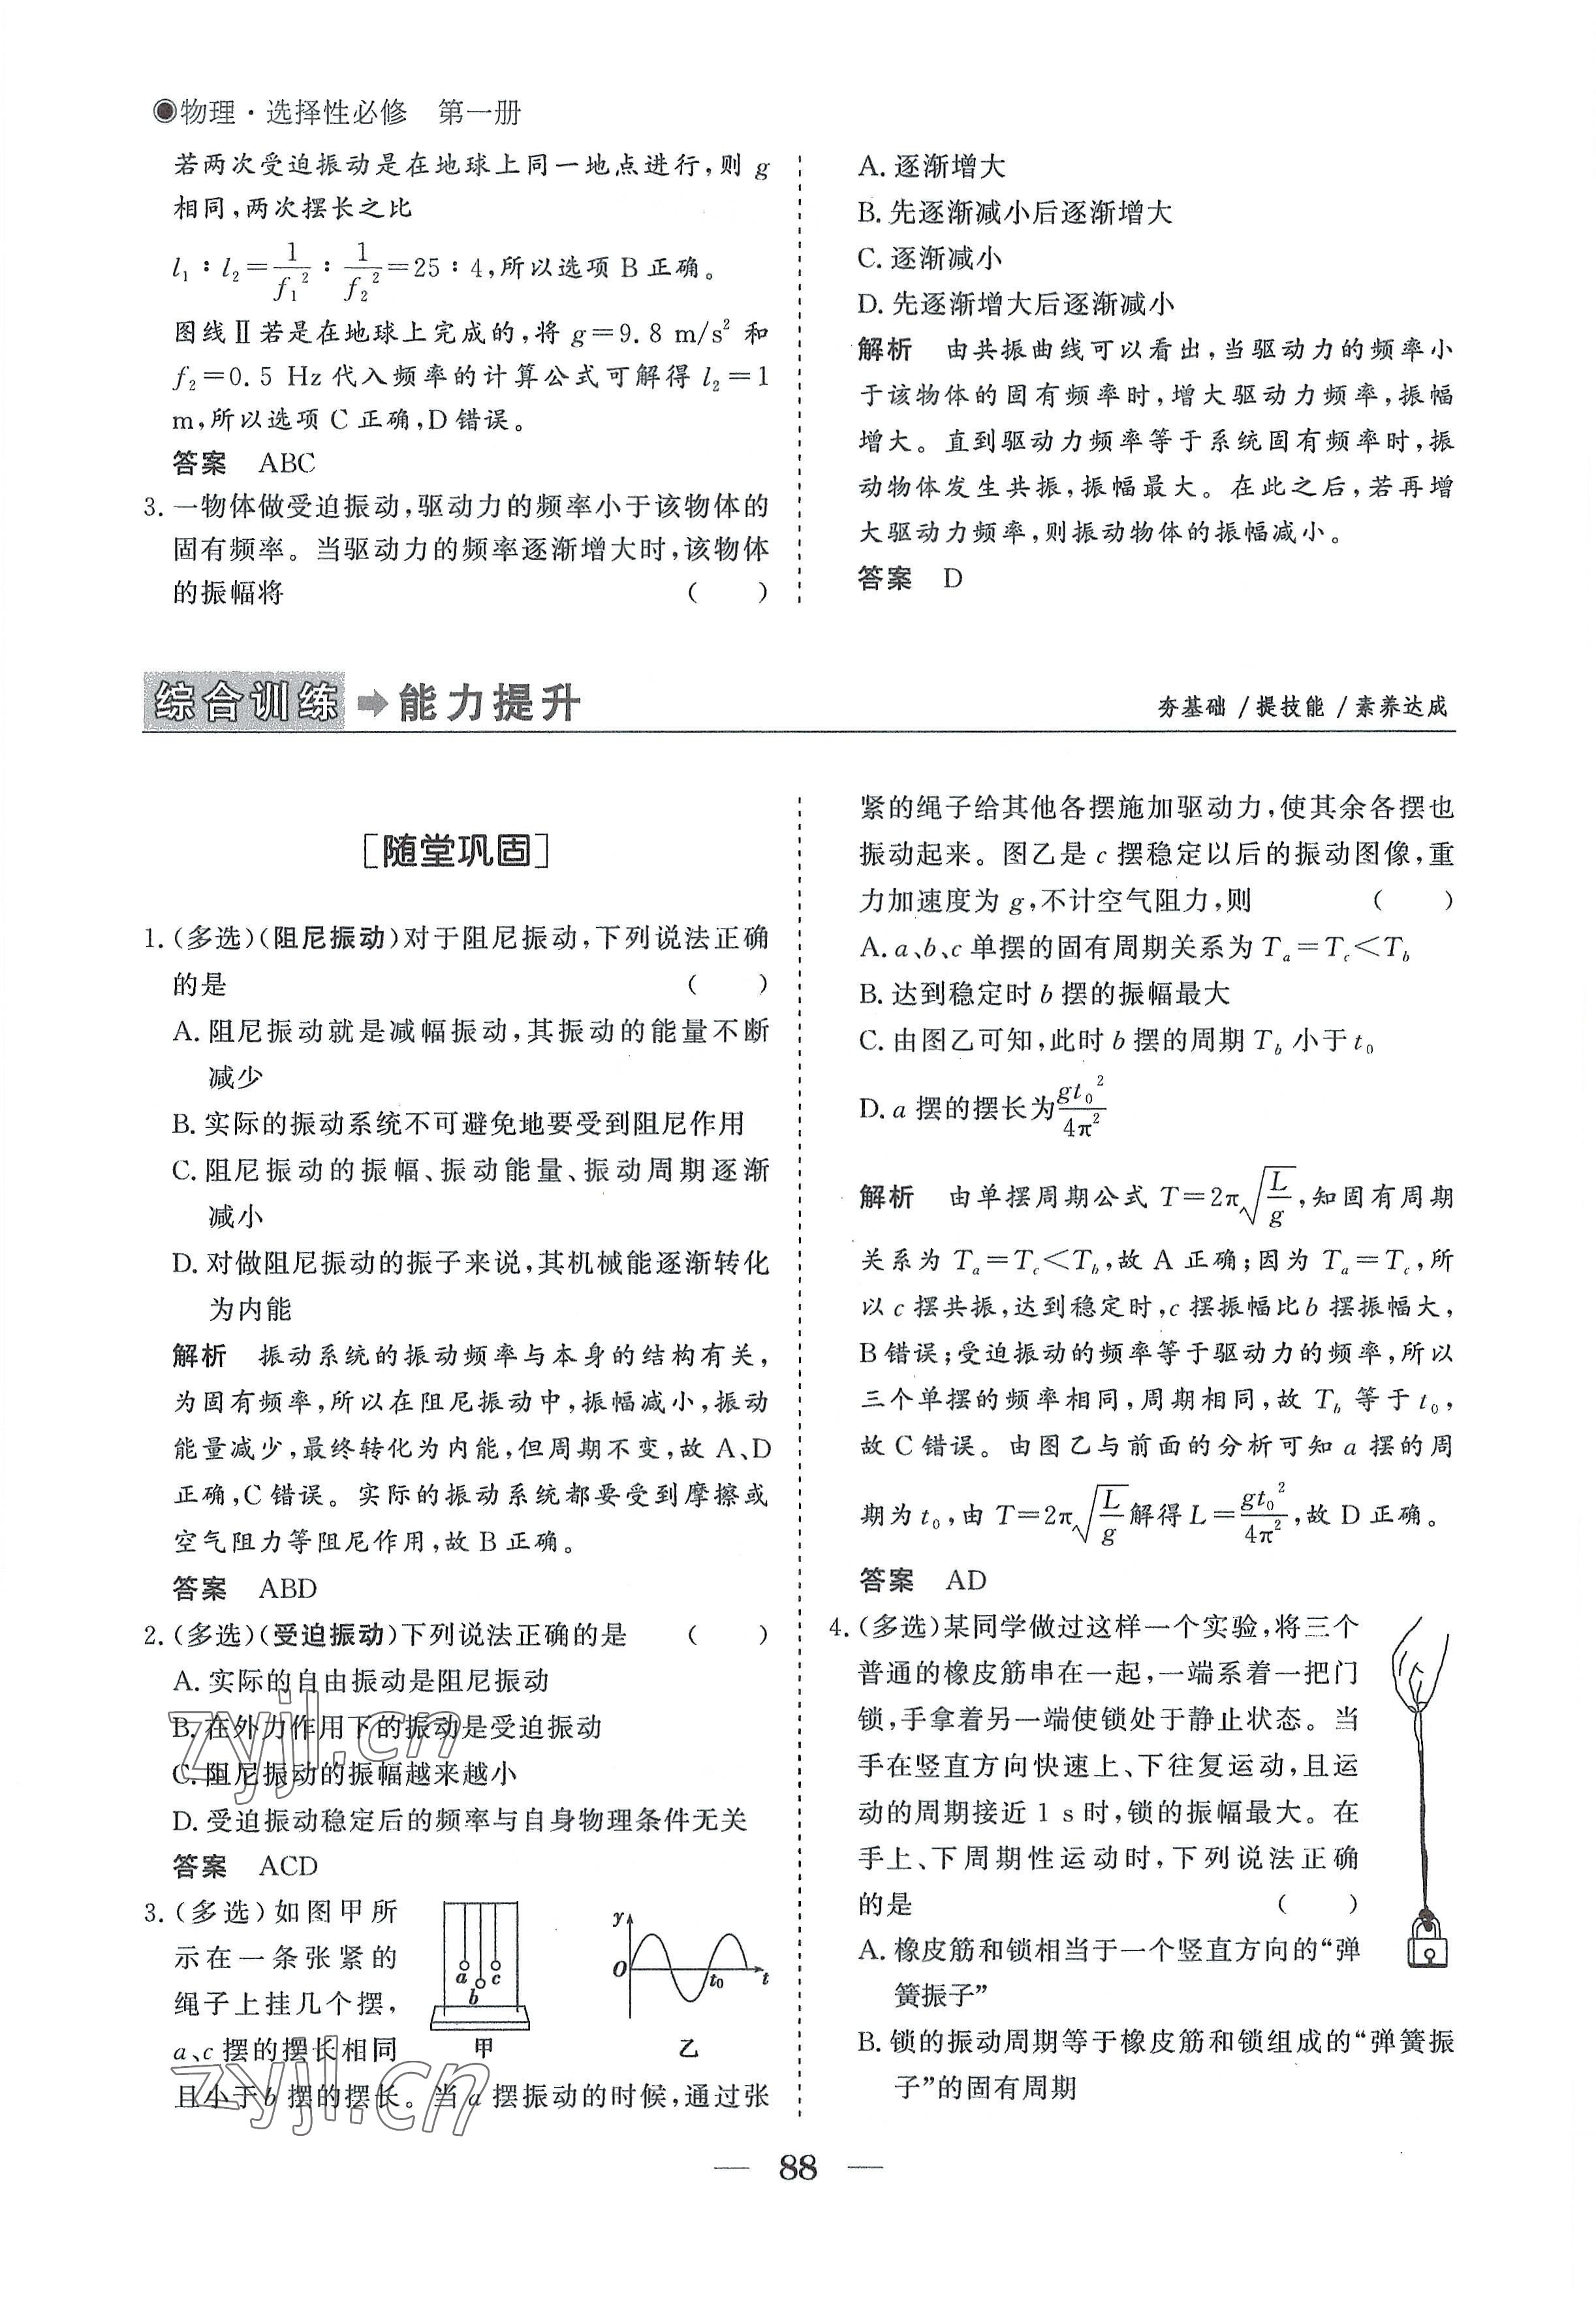 物理·选择性必修 第一册
若两次受迫振动是在地球上同一地点进行,则 g
相同,两次摆长之比
l₁∶l₂=1/f₁²∶1/f₂²=25∶4,所以选项 B 正确。
图线Ⅱ若是在地球上完成的,将 g=9.8 m/s² 和
f₂=0.5 Hz 代入频率的计算公式可解得 l₂=1
m,所以选项 C 正确,D 错误。
答案 ABC
3. 一物体做受迫振动,驱动力的频率小于该物体的
固有频率。当驱动力的频率逐渐增大时,该物体
的振幅将 ( )
A. 逐渐增大
B. 先逐渐减小后逐渐增大
C. 逐渐减小
D. 先逐渐增大后逐渐减小
解析 由共振曲线可以看出,当驱动力的频率小
于该物体的固有频率时,增大驱动力频率,振幅
增大。直到驱动力频率等于系统固有频率时,振
动物体发生共振,振幅最大。在此之后,若再增
大驱动力频率,则振动物体的振幅减小。
答案 D
综合训练 能力提升
夯基础/提技能/素养达成
[随堂巩固]
1. (多选)(阻尼振动)对于阻尼振动,下列说法正确
的是 ( )
A. 阻尼振动就是减幅振动,其振动的能量不断
减少
B. 实际的振动系统不可避免地要受到阻尼作用
C. 阻尼振动的振幅、振动能量、振动周期逐渐
减小
D. 对做阻尼振动的振子来说,其机械能逐渐转化
为内能
解析 振动系统的振动频率与本身的结构有关,
为固有频率,所以在阻尼振动中,振幅减小,振动
能量减少,最终转化为内能,但周期不变,故 A、D
正确,C 错误。实际的振动系统都要受到摩擦或
空气阻力等阻尼作用,故 B 正确。
答案 ABD
2. (多选)(受迫振动)下列说法正确的是 ( )
A. 实际的自由振动是阻尼振动
B. 在外力作用下的振动是受迫振动
C. 阻尼振动的振幅越来越小
D. 受迫振动稳定后的频率与自身物理条件无关
答案 ACD
3. (多选)如图甲所
示在一条张紧的
绳子上挂几个摆,
a、c 摆的摆长相同
且小于 b 摆的摆长。当 a 摆振动的时候,通过张
a b c
甲
y O t₀ t
乙
紧的绳子给其他各摆施加驱动力,使其余各摆也
振动起来。图乙是 c 摆稳定以后的振动图像,重
力加速度为 g,不计空气阻力,则 ( )
A. a、b、c 单摆的固有周期关系为 Tₐ=T꜀<T_b
B. 达到稳定时 b 摆的振幅最大
C. 由图乙可知,此时 b 摆的周期 T_b 小于 t₀
D. a 摆的摆长为 gt₀²/4π²
解析 由单摆周期公式 T=2π√(L/g),知固有周期
关系为 Tₐ=T꜀<T_b,故 A 正确;因为 Tₐ=T꜀,所
以 c 摆共振,达到稳定时,c 摆振幅比 b 摆振幅大,
B 错误;受迫振动的频率等于驱动力的频率,所以
三个单摆的频率相同,周期相同,故 T_b 等于 t₀,
故 C 错误。由图乙与前面的分析可知 a 摆的周
期为 t₀,由 T=2π√(L/g) 解得 L=gt₀²/4π²,故 D 正确。
答案 AD
4. (多选)某同学做过这样一个实验,将三个
普通的橡皮筋串在一起,一端系着一把门
锁,手拿着另一端使锁处于静止状态。当
手在竖直方向快速上、下往复运动,且运
动的周期接近 1 s 时,锁的振幅最大。在
手上、下周期性运动时,下列说法正确
的是 ( )
A. 橡皮筋和锁相当于一个竖直方向的“弹
簧振子”
B. 锁的振动周期等于橡皮筋和锁组成的“弹簧振
子”的固有周期
zyjl.cn
zyjl.cn
— 88 —